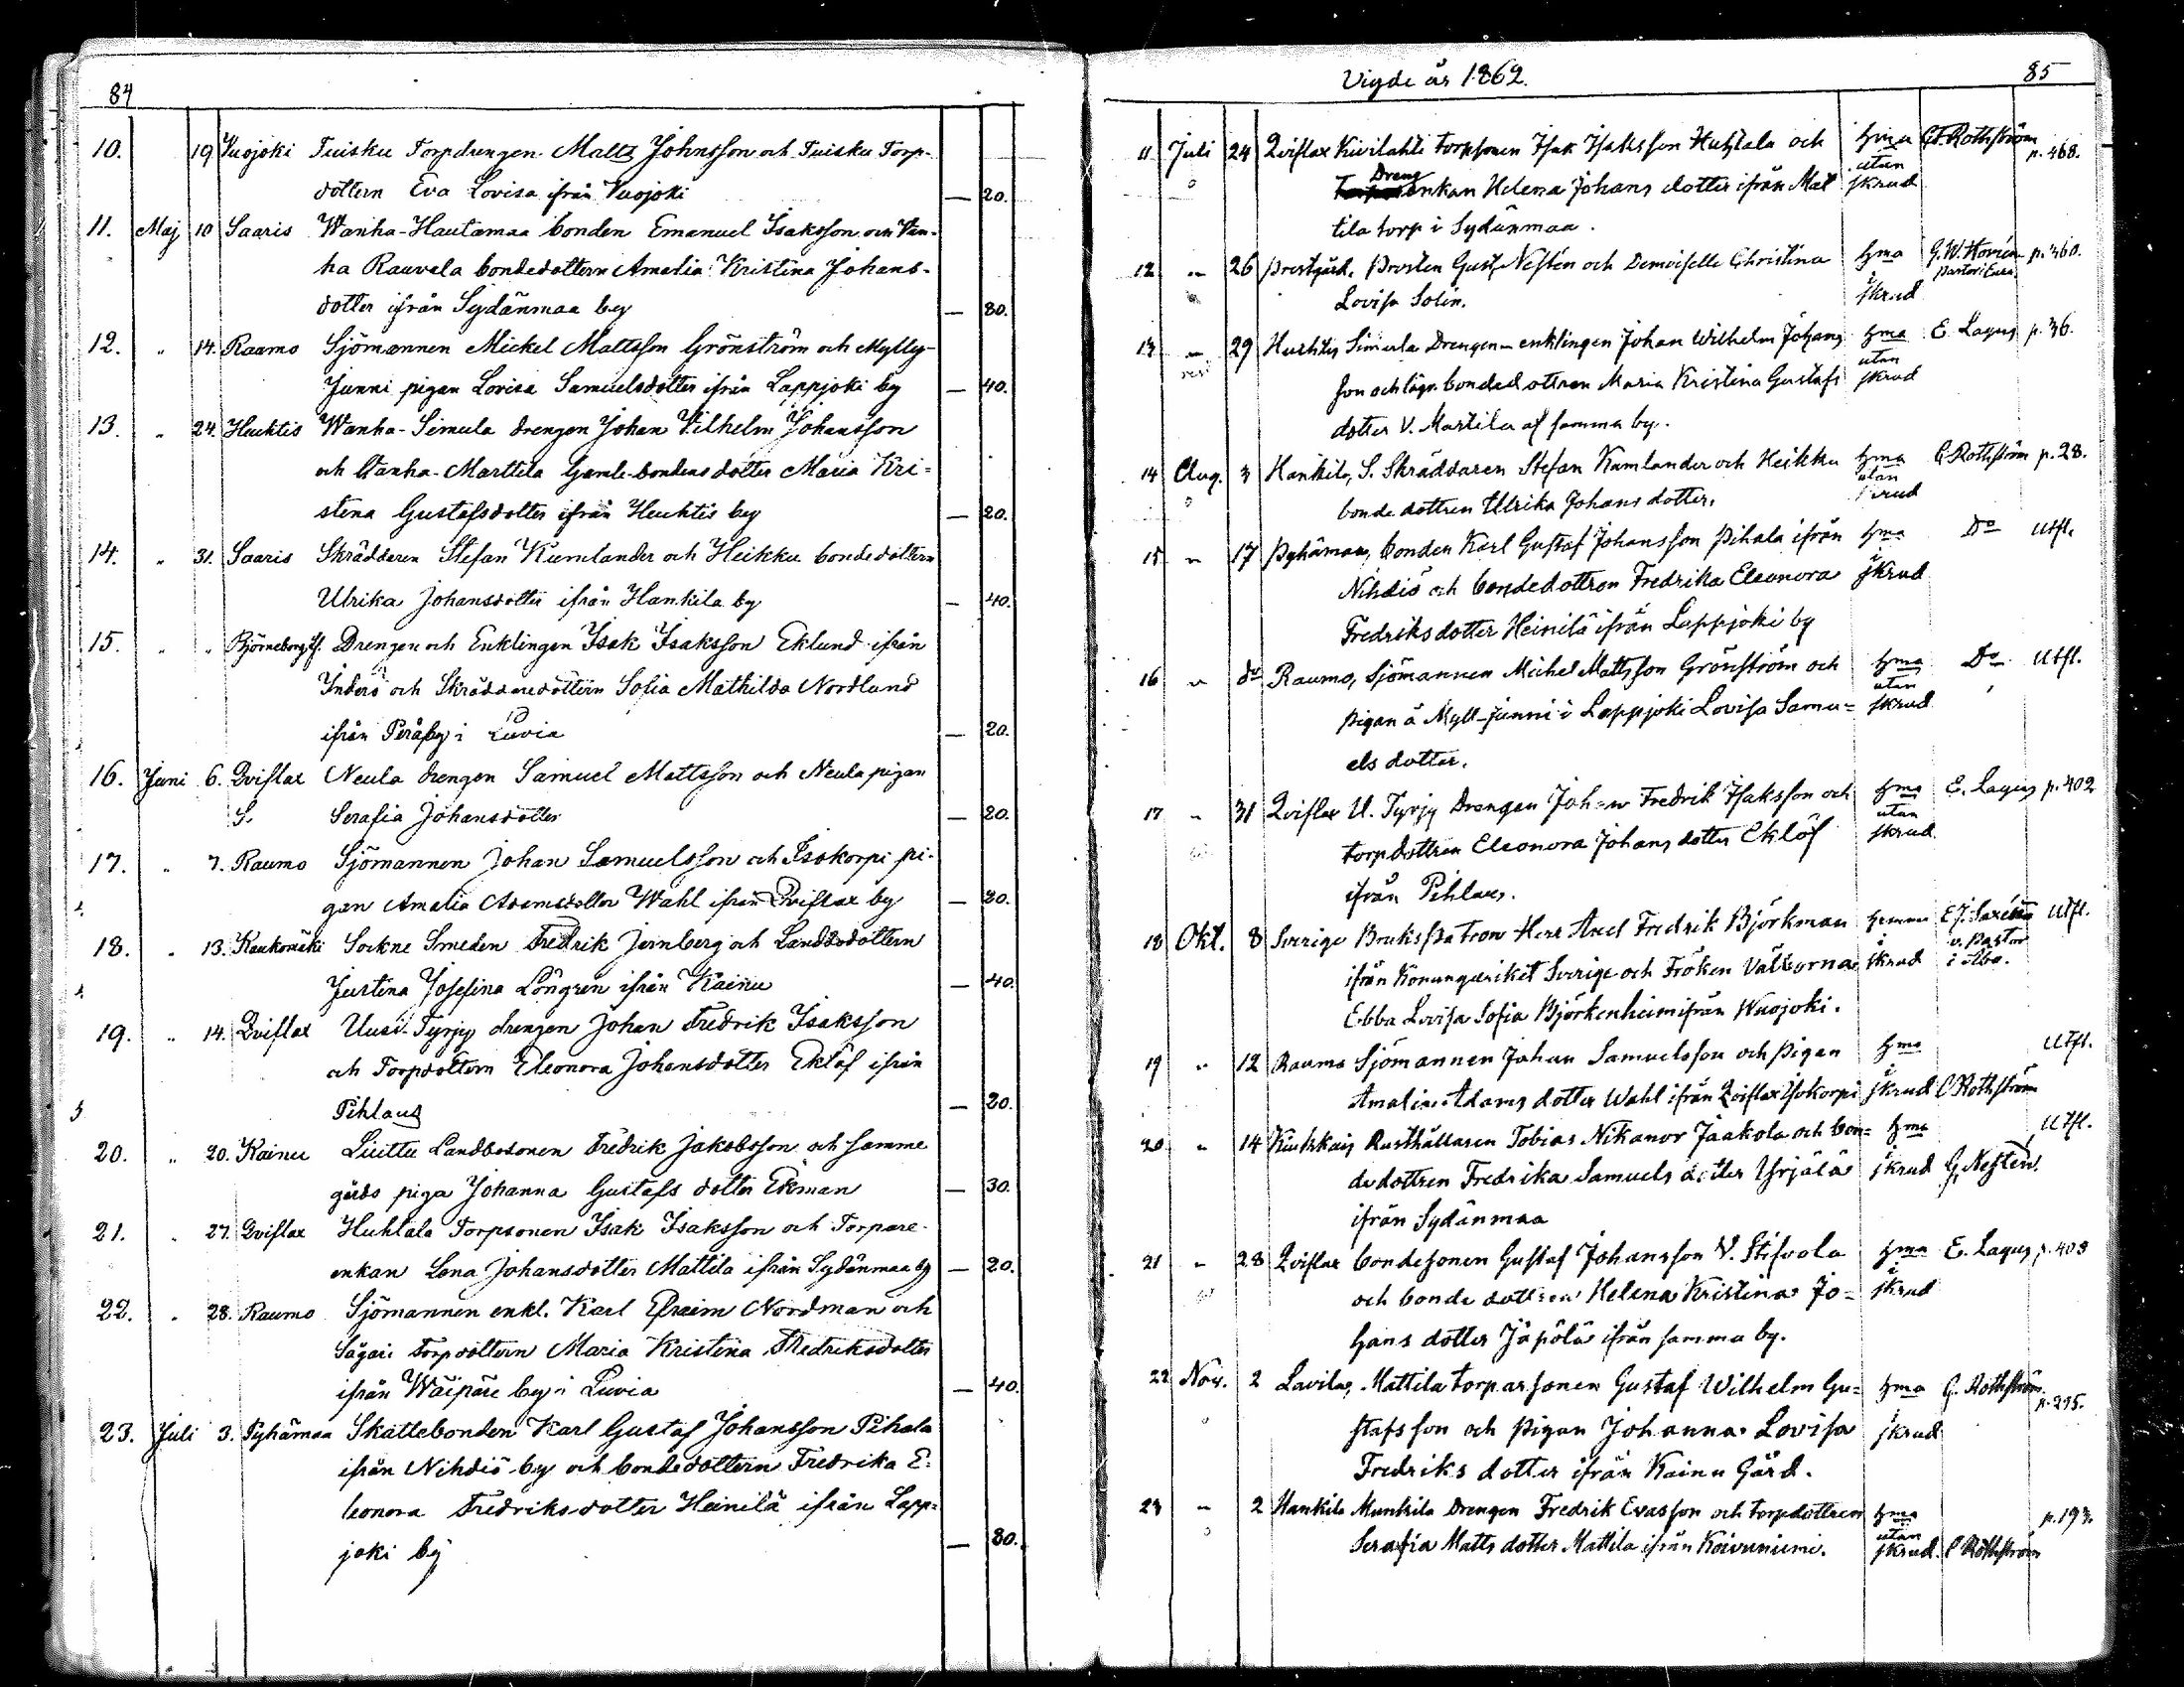 84
10. 19 Vuojoki Tuisku Torpdrengen Matts Johnsson och Tuisku Torp-
dottern Eva Lovisa ifrån Vuojoki — 20.
11. Maj 10 Saaris Wanha-Hautamaa bonden Emanuel Isaksson och Van-
ha Rauvala bondedottern Amalia Kristina Johans-
dotter ifrån Sydänmaa by — 80.
12. " 14. Raumo Sjömannen Mickel Mattsson Grönström och Mylly-
Junni pigan Lovisa Samuelsdotter ifrån Lappjoki by — 40.
13. " 24. Huhtis Wanha-Simula drengen Johan Vilhelm Johansson
och Wanha-Marttila Gamle-bondens dotter Maria Kri-
stina Gustafsdotter ifrån Huhtis by — 20.
14. " 31. Saaris Skräddaren Stefan Kumlander och Heikku bondedottern
Ulrika Johansdotter ifrån Hankila by — 40.
15. " " Björneborg lf. Drengen och Enklingen Isak Isaksson Eklund ifrån
Inderö och Skräddaredottern Sofia Mathilda Nordlund
ifrån Peräby i Luvia — 20.
16. Juni 6. Qviflax Neula drengen Samuel Mattsson och Neula pigan
S. Serafia Johansdotter — 20.
17. " 7. Raumo Sjömannen Johan Samuelsson och Isokorpi pi-
gan Amalia Adamsdotter Wahl ifrån Qviflax by — 30.
18. " 13. Kaukomäki Sockne Smeden Fredrik Jernberg och Landbodottern
Justina Josefina Löngren ifrån Kainu — 40.
19. " 14. Qviflax Uusi-Tyrjy drengen Johan Fredrik Isaksson
och Torpdottern Eleonora Johansdotter Eklöf ifrån
Pihlaus — 20.
20. " 20. Kainu Liuttu Landbosonen Fredrik Jakobsson och samme
gårds piga Johanna Gustafs dotter Ekman — 30.
21. " 27. Qviflax Huhtala Torpsonen Isak Isaksson och Torpare-
enkan Lena Johansdotter Mattila ifrån Sydänmaa by — 20.
22. " 28. Raumo Sjömannen enkl. Karl Efraim Nordman och
Sägari Torpdottern Maria Kristina Fredriksdotter
ifrån Wäipäre by i Luvia — 40.
23. Juli 3. Pyhämaa Skattebonden Karl Gustaf Johansson Pihala
ifrån Nihdiö by och bondedottern Fredrika E-
leonora Fredriksdotter Heinilä ifrån Lapp-
joki by — 80.
Vigde år 1862. 85
11 Juli 24 Qviflax Kivilahti torpsonen Isak Isaksson Huhtala och hma G.F. Rothström p. 468.
Dreng enkan Helena Johans dotter ifrån Mat utan skrud
tila torp i Sydänmaa.
12 " 26 Prestgård, Prosten Gust. Nestén och Demoiselle Christina hma G.W. Horién p. 460.
Lovisa Solin. i skrud Pastor i Eura
13 " 29 Huhtis Simula Drengen-enklingen Johan Wilhelm Johans hma E. Lagus p. 36.
son och bondedottren Maria Kristina Gustafs utan skrud
dotter V. Martila af samma by.
14 Aug. 3 Hankila, S. Skräddaren Stefan Kumlander och Heikku hma G Rothström p. 28.
bonde dottren Ulrika Johans dotter. utan skrud
15 " 17 Pyhämaa, bonden Karl Gustaf Johansson Pihala ifrån hma Do utfl.
Nihdiö och bondedottren Fredrika Eleonora i skrud
Fredriks dotter Heinilä ifrån Lappjoki by
16 " do Raumo, Sjömannen Michel Mattsson Grönström och hma Do utfl.
pigan å Myll-Junni i Lappjoki Lovisa Samu= utan skrud
els dotter.
17 " 31 Qviflax U. Tyrjy Drengen Johan Fredrik Isaksson och hma E. Lagus p. 402
torpdottren Eleonora Johans dotter Eklöf utan skrud
ifrån Pihlaus.
18 Okt. 8 Sverige BruksPatron Herr Axel Fredrik Björkman hemma E.J. Saxén utfl.
ifrån Konungariket Sverige och Fröken Välborna i skrud v. Pastor i Åbo.
Ebba Lovisa Sofia Björkenheim ifrån Wuojoki.
19 " 12 Raumo Sjömannen Johan Samuelsson och Pigan hma utfl.
Amalia Adams dotter Wahl ifrån Qviflax Isokorpi i skrud G Rothström
20 " 14 Kiukais Rusthållaren Tobias Nikanor Jaakola och bon= hma utfl.
dedottren Fredrika Samuels dotter Yrjälä i skrud G. Nestén.
ifrån Sydänmaa
21 " 28 Qviflax bondesonen Gustaf Johansson V. Stifvola hma E. Lagus p. 403
och bonde dottren Helena Kristina Jo= i skrud
hans dotter Jäpölä ifrån samma by.
22 Nov. 2 Lavila, Mattila torparsonen Gustaf Wilhelm Gu= hma G. Rothström p. 295.
stafsson och pigan Johanna Lovisa i skrud
Fredriks dotter ifrån Kainu Gård.
23 " 2 Hankila Munkila Drengen Fredrik Evasson och torpdottren hma p. 193.
Serafia Matts dotter Mattila ifrån Koivuniemi. utan skrud. G Rothström